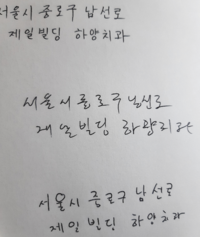 서울시 중로구 남선로
제일빌딩 하양치과
서울시 종로구 남선로
제일빌딩 하양치과
서울시 중로구 남선로
제일빌딩 하양치과